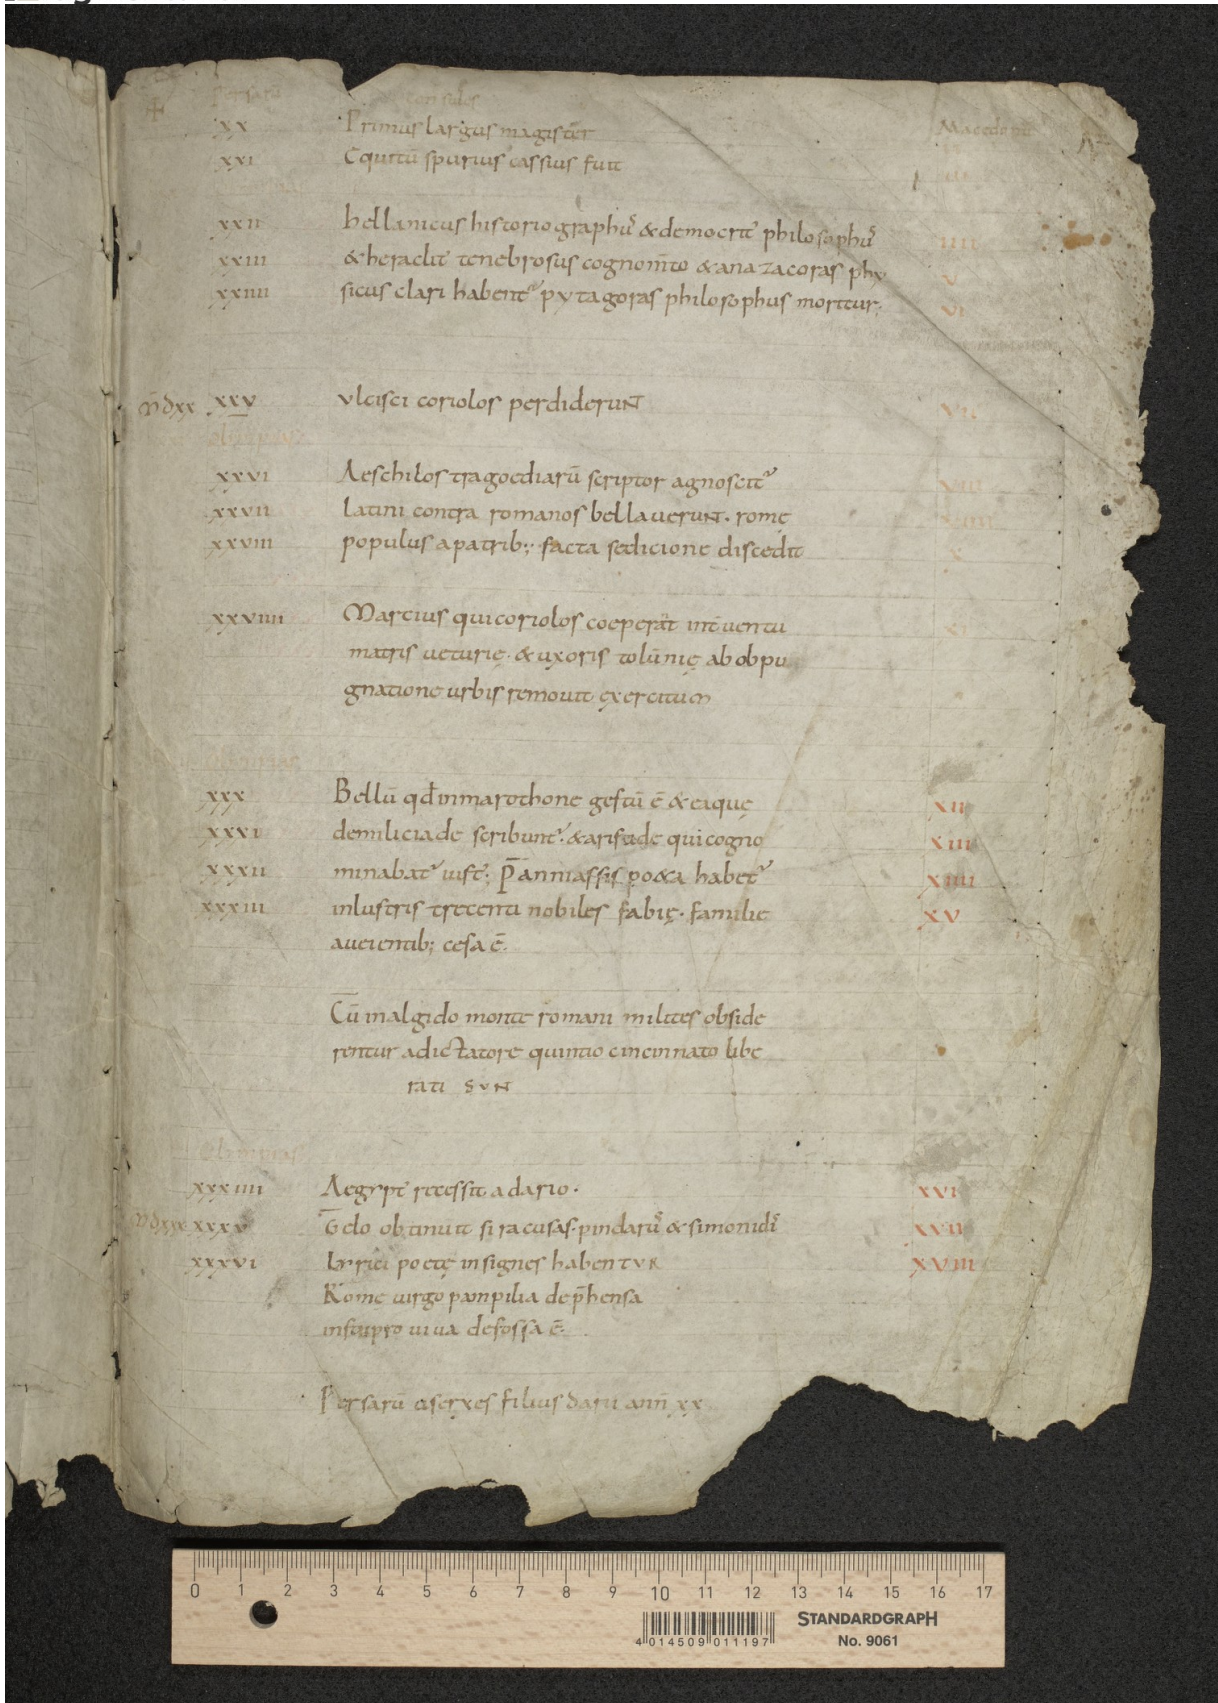 Persarū consules
xx Primus largus magister Macedonū
xxi Equitū spurius cassius fuit iii
xxii hellanicus historiographus & democrit philosophus iiii
xxiii & heraclit tenebrosus cognomto & anazacoras phy v
xxiiii sicus clari habent pytagoras philosophus moritur; vi
m̄dxx xxv vlcisci coriolos perdiderunt vii
olimpias
xxvi Aeschilos tragoediarū scriptor agnoscit viii
xxvii latini contra romanos bellauerunt. romę viiii
xxviii populus a patrib; facta sedicione discedit x
xxviiii Marcius qui coriolos coeperat int̄uentu xi
matris ueturię. & uxoris uolūnię ab obpu
gnatione urbis remouit exercitum
olimpias
xxx Bellū qđ in marothone gestū ē & eaque xii
xxxi de miliciade scribunt. & aristide qui cogno xiii
xxxii minabat iust; P̄anniassis po&a habet xiiii
xxxiii inlustris trecenti nobiles fabię. familie xv
aueientib; cesa ē.
Cū in algido monte romani milites obside
rentur a dictatore quintio cincinnato libe
rati SUN
Olimpias
xxxiiii Aegypt recessit a dario. xvi
m̄dxxx xxxv Gelo obtinuit siracusas. pindarus & simonidis xvii
xxxvi Lyrici poetę insignes habentur xviii
Rome uirgo pompilia dep̄hensa
in stupro uiua defossa ē.
Persarū xserxes filius darii ann̄ xx
0 1 2 3 4 5 6 7 8 9 10 11 12 13 14 15 16 17
4 014509 011197
STANDARDGRAPH
No. 9061